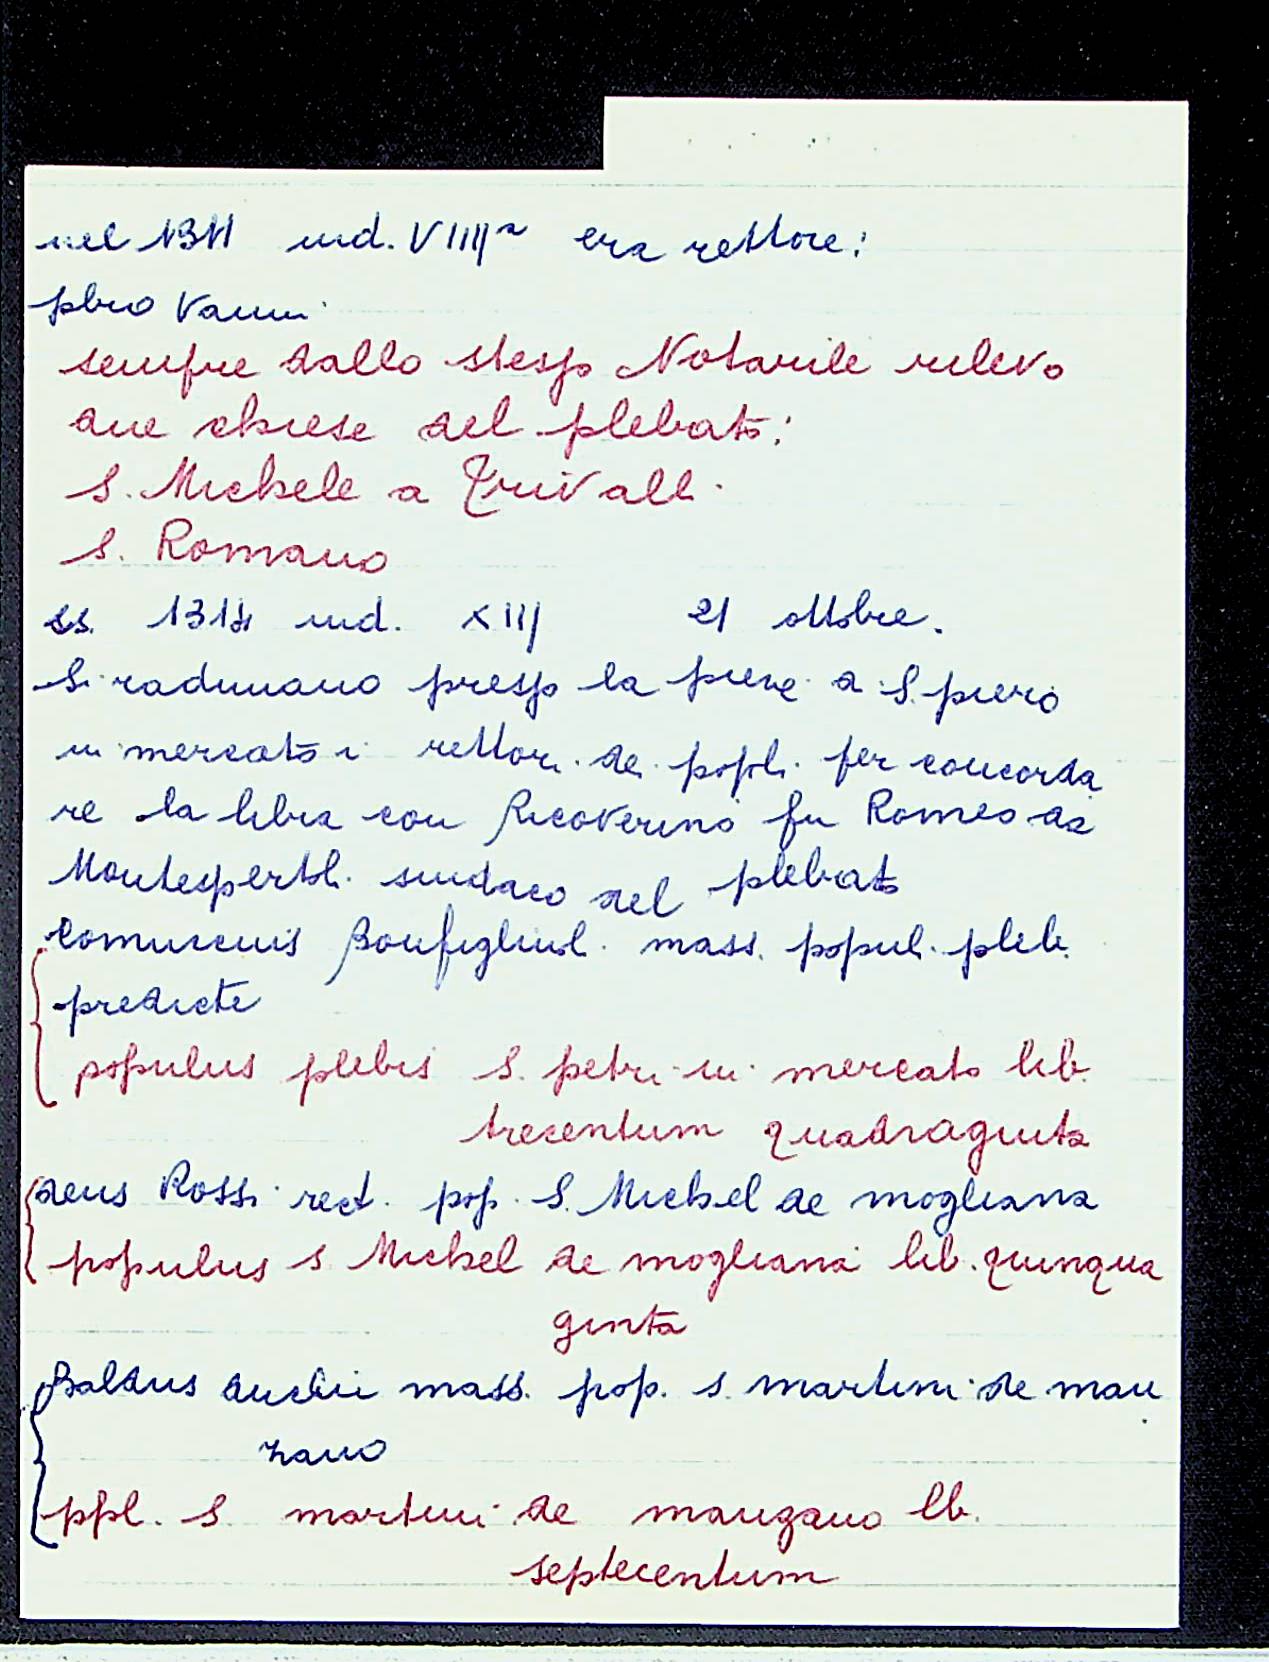 nel 1311 ind. VIIIIa era rettore:
pbro Vanni
sempre dallo stesso Notarile rilevo
due chiese del plebato:
S. Michele a Trivalli
S. Romano
ss. ind. XIIJ 21 ottobre.
Si radunano presso la pieve a S. piero
in mercato i rettori dei popoli per concorda
re la libra con Ricoverino fu Romeo da
Montespertoli sindaco del plebato
Bonfigliuoli mass. popul. pleb.
predicte
populus plebis S. petri in mercato lib.
trecentum quadraginta
deus Rossi rect. pop. S. Michel de mogliana
populus S Michel de mogliana lib. quinqua
ginta
Baldus mass. pop. s. martini de man
zano
ppl. S martini de manzano lb.
septecentum